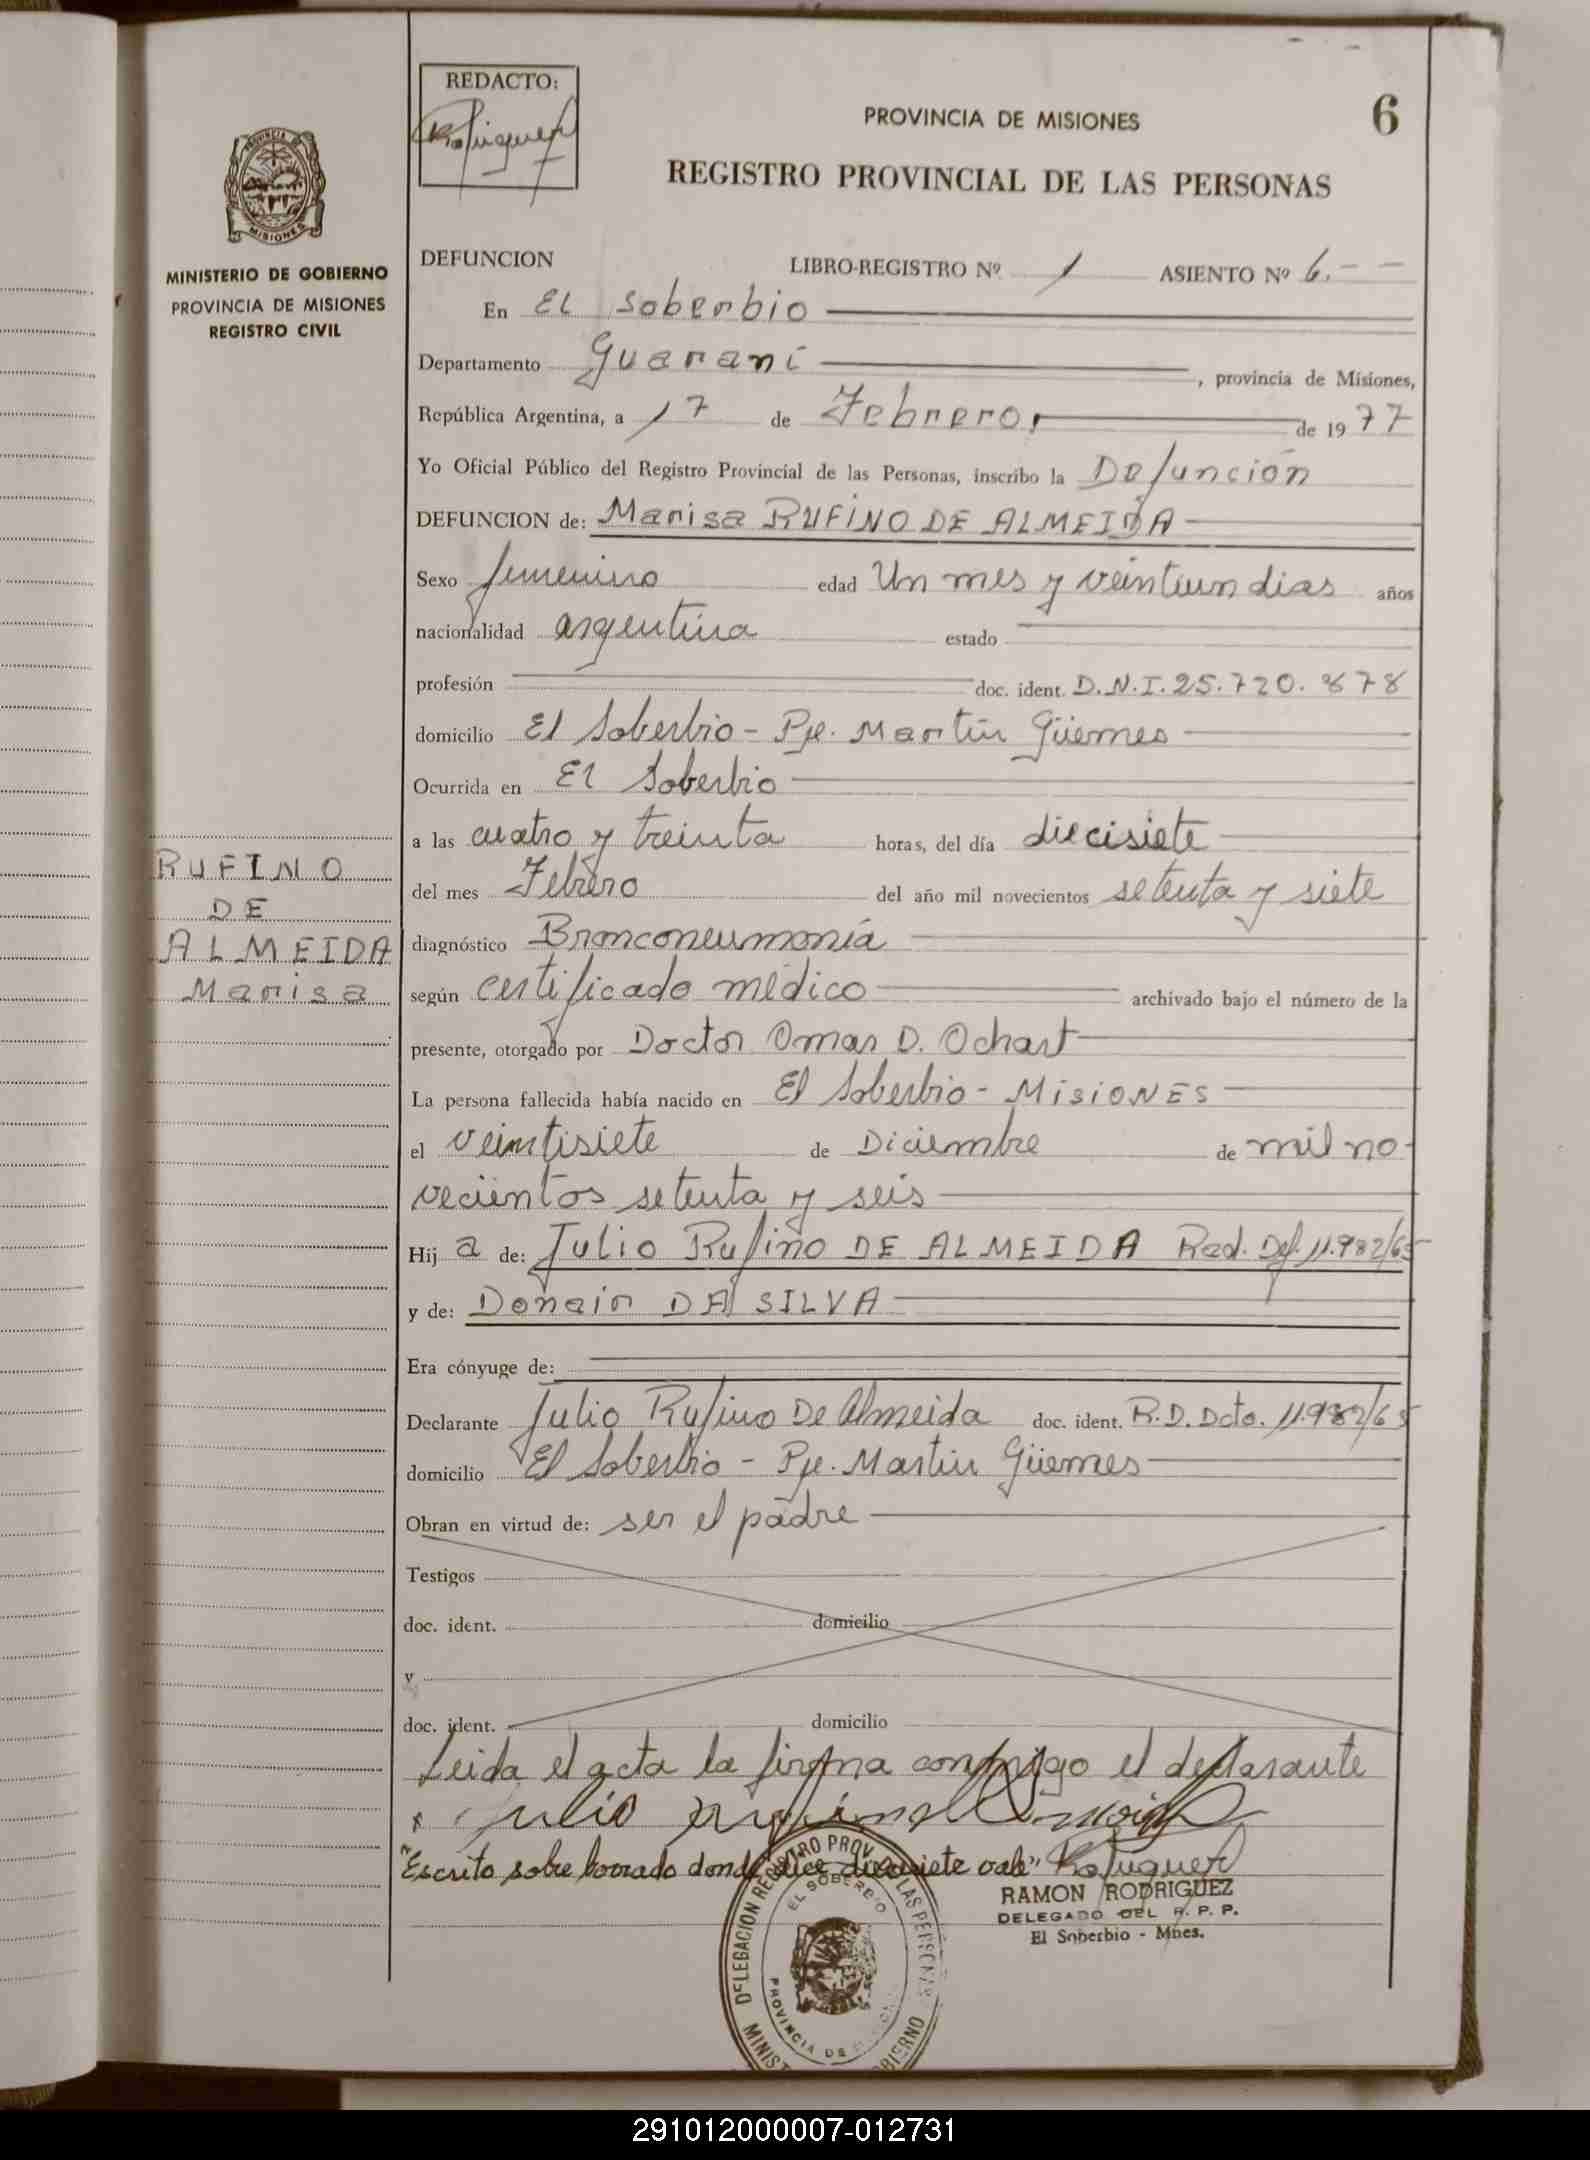 REDACTO:
Rodriguez
PROVINCIA DE MISIONES
6
REGISTRO PROVINCIAL DE LAS PERSONAS
PROVINCIA DE
MISIONES
MINISTERIO DE GOBIERNO
PROVINCIA DE MISIONES
REGISTRO CIVIL
DEFUNCION LIBRO-REGISTRO Nº 1 ASIENTO Nº 6.- -
En EL Soberbio
Departamento Guaraní , provincia de Misiones,
República Argentina, a 17 de Febrero, de 1977
Yo Oficial Público del Registro Provincial de las Personas, inscribo la Defunción
DEFUNCION de: Marisa RUFINO DE ALMEIDA
Sexo femenino edad Un mes y veintiun dias años
nacionalidad argentina estado
profesión doc. ident. D.N.I. 25.720.878
domicilio El Soberbio - Pje. Martín Güemes
Ocurrida en El Soberbio
a las cuatro y treinta horas, del día diecisiete
del mes Febrero del año mil novecientos setenta y siete
RUFINO
DE
ALMEIDA
Marisa
diagnóstico Bronconeumonía
según certificado médico archivado bajo el número de la
presente, otorgado por Doctor Omar D. Ochart
La persona fallecida había nacido en El Soberbio - MISIONES
el veintisiete de Diciembre de mil no-
vecientos setenta y seis
Hij a de: Julio Rufino DE ALMEIDA Rad. Def. 11.982/65
y de: Donain DA SILVA
Era cónyuge de:
Declarante Julio Rufino De Almeida doc. ident. R.D. Dcto. 11.982/65
domicilio El Soberbio - Pje. Martin Güemes
Obran en virtud de: ser el padre
Testigos
doc. ident. domicilio
y
doc. ident. domicilio
Leida el acta la firma conmigo el declarante
x Julio Rufino de Almeida
"Escrito sobre borrado donde dice diecisiete vale" Rodriguez
RAMON RODRIGUEZ
DELEGADO DEL R. P. P.
El Soberbio - Mnes.
DELEGACION REGISTRO PROV. DE LAS PERSONAS
EL SOBERBIO
PROVINCIA DE
291012000007-012731